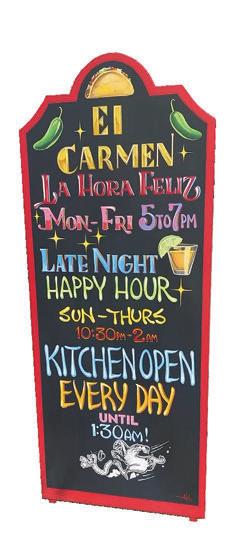 El
CARMEN
LA HORA FELIZ
MON-FRI 5 to 7 PM
LATE NIGHT
HAPPY HOUR
SUN-THURS
10:30PM-2AM
KITCHEN OPEN
EVERY DAY
UNTIL
1:30AM!